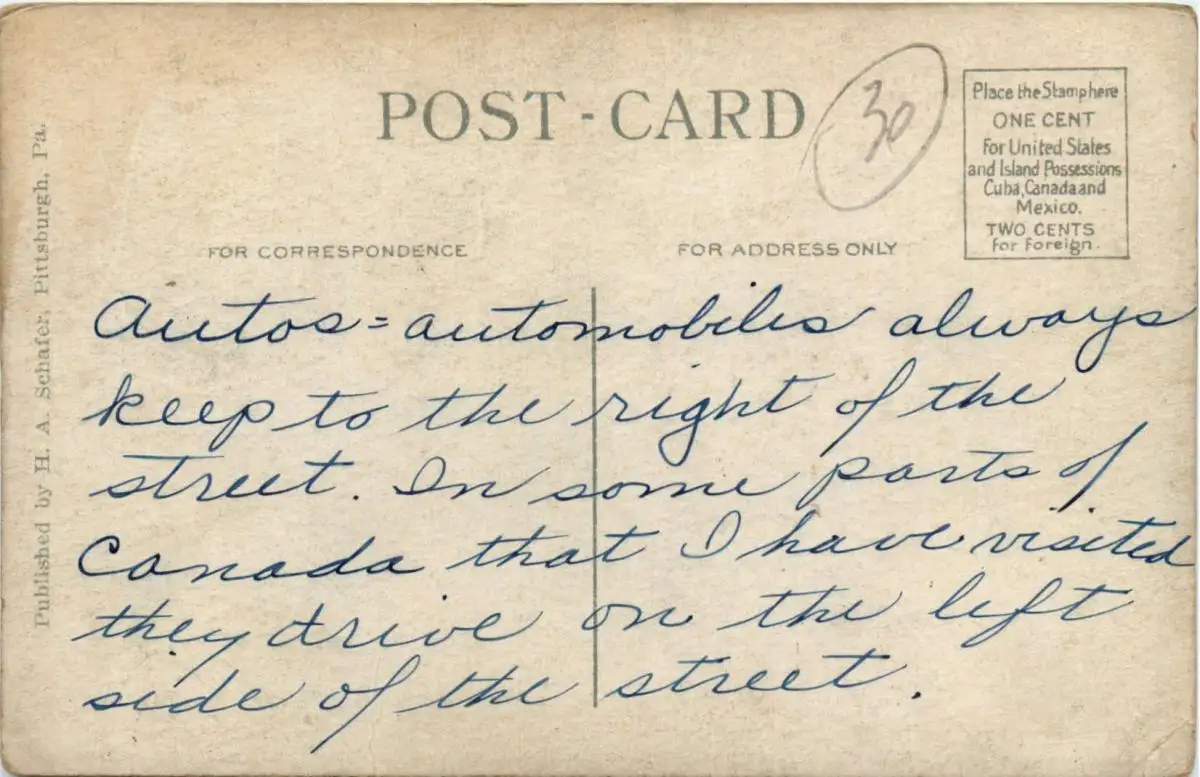 POST-CARD
30
Place the Stamp here
ONE CENT
For United States
and Island Possessions
Cuba, Canada and
Mexico.
TWO CENTS
for Foreign.
FOR CORRESPONDENCE
FOR ADDRESS ONLY
Published by H. A. Schafer, Pittsburgh, Pa.
Autos = automobiles always
keep to the right of the
street. In some parts of
Canada that I have visited
they drive on the left
side of the street.